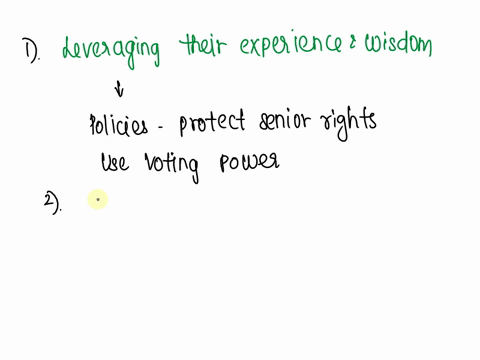 1). Leveraging their experience & wisdom
↓
Policies - protect senior rights
Use voting power
2).